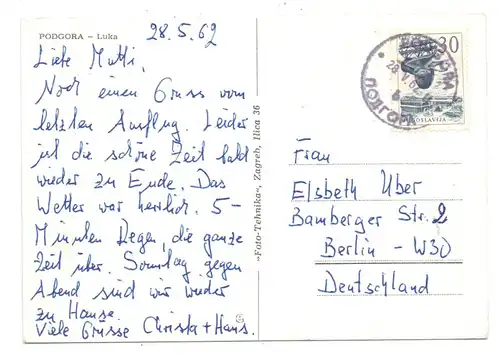 PODGORA – Luka
28.5.62
Liebe Mutti,
Noch einen Gruss vom
letzten Ausflug. Leider
ist die schöne Zeit bald
wieder zu Ende. Das
Wetter war herrlich. 5-
Minuten Regen, die ganze
Zeit über. Sonntag gegen
Abend sind wir wieder
zu Hause.
Viele Grüsse Christa + Hans.
»Foto-Tehnika«, Zagreb, Ilica 36
30
JUGOSLAVIJA
ПОДГОРА
Frau
Elsbeth Uber
Bamberger Str. 2
Berlin - W30
Deutschland